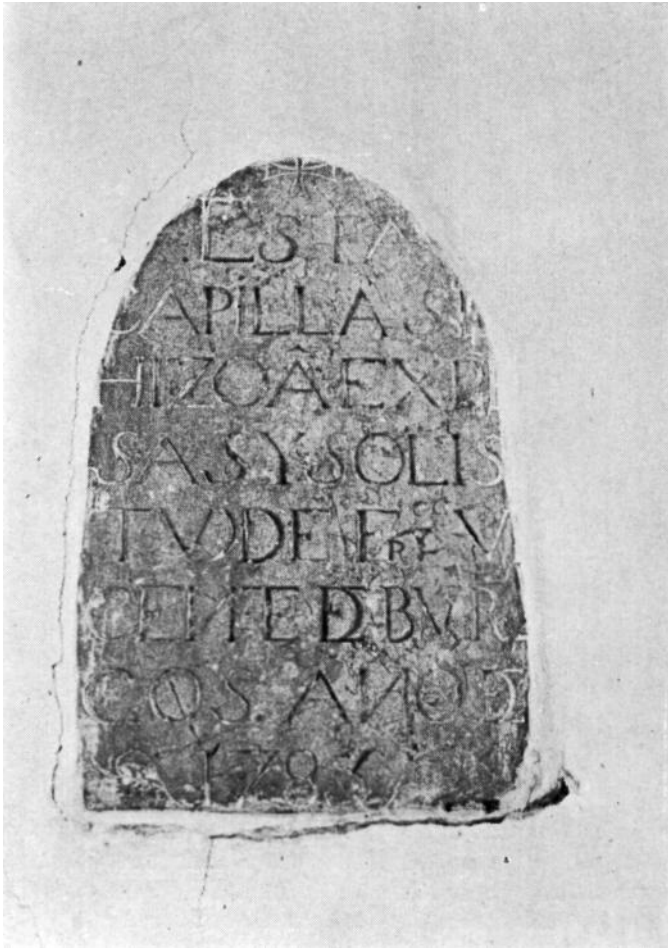 ESTA
CAPILLA SE
HIZO Â EXPE
SAS Y SOLIS
TUD DE Frco V
CENTE DE BVR
GOS ANO D
1779